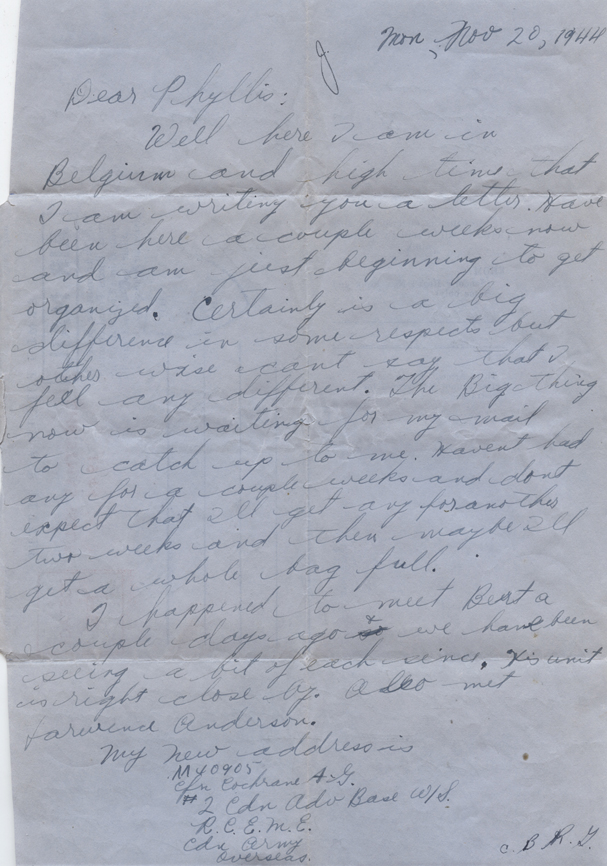 Mon, Nov 20, 1944
Dear Phyllis:
Well here I am in
Belgium and high time that
I am writing you a letter. Have
been here a couple weeks now
and am just beginning to get
organized. Certainly is a big
difference in some respects but
other wise cant say that I
fell any different. The Big thing
now is waiting for my mail
to catch up to me. Havent had
any for a couple weeks and dont
expect that Ill get any for another
two weeks and then maybe Ill
get a whole bag full.
I happened to meet Bert a
couple days ago & we have been
seeing a bit of each since. His unit
is right close by. Also met
Anderson.
My new address is
M40905
Cfn Cochrane A.G.
#2 Cdn Adv Base W/S.
R.C.E.M.E.
Cdn Army
Overseas.